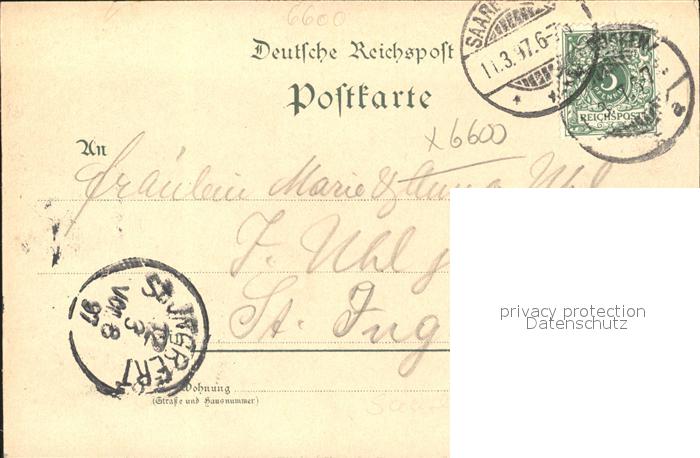 6600
Deutsche Reichspost
Postkarte
SAARB
11.3.97.6-7
5
REICHSPOST
x6600
An
Fräulein Marie & Anna Uhl
J. Uhl
St. Ing
ST. INGBERT
13
3
VOR. 8
97
privacy protection
Datenschutz
Wohnung
(Straße und Hausnummer)